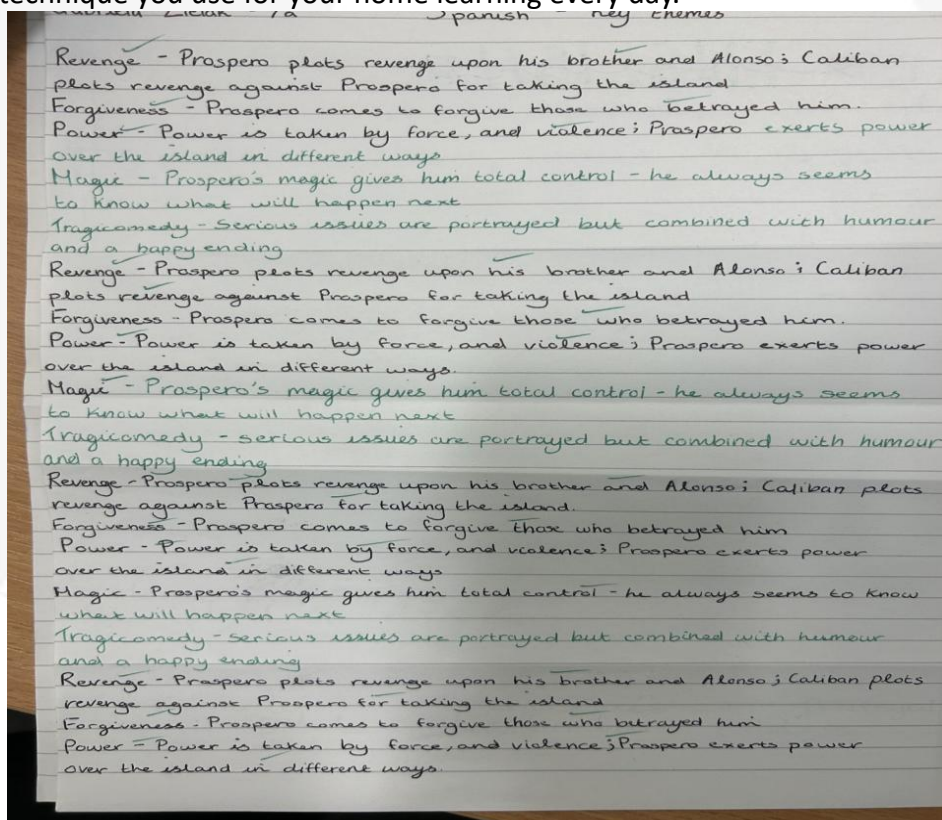 technique you use for your home learning every day.
Spanish - Key themes
Revenge - Prospero plots revenge upon his brother and Alonso; Caliban
plots revenge against Prospero for taking the island
Forgiveness - Prospero comes to forgive those who betrayed him.
Power - Power is taken by force, and violence; Prospero exerts power
over the island in different ways
Magic - Prospero's magic gives him total control - he always seems
to know what will happen next
Tragicomedy - Serious issues are portrayed but combined with humour
and a happy ending
Revenge - Prospero plots revenge upon his brother and Alonso; Caliban
plots revenge against Prospero for taking the island
Forgiveness - Prospero comes to forgive those who betrayed him.
Power - Power is taken by force, and violence; Prospero exerts power
over the island in different ways.
Magic - Prospero's magic gives him total control - he always seems
to know what will happen next
Tragicomedy - serious issues are portrayed but combined with humour
and a happy ending
Revenge - Prospero plots revenge upon his brother and Alonso; Caliban plots
revenge against Prospero for taking the island.
Forgiveness - Prospero comes to forgive those who betrayed him
Power - Power is taken by force, and violence; Prospero exerts power
over the island in different ways
Magic - Prospero's magic gives him total control - he always seems to know
what will happen next
Tragicomedy - serious issues are portrayed but combined with humour
and a happy ending
Revenge - Prospero plots revenge upon his brother and Alonso; Caliban plots
revenge against Prospero for taking the island
Forgiveness - Prospero comes to forgive those who betrayed him
Power - Power is taken by force, and violence; Prospero exerts power
over the island in different ways.